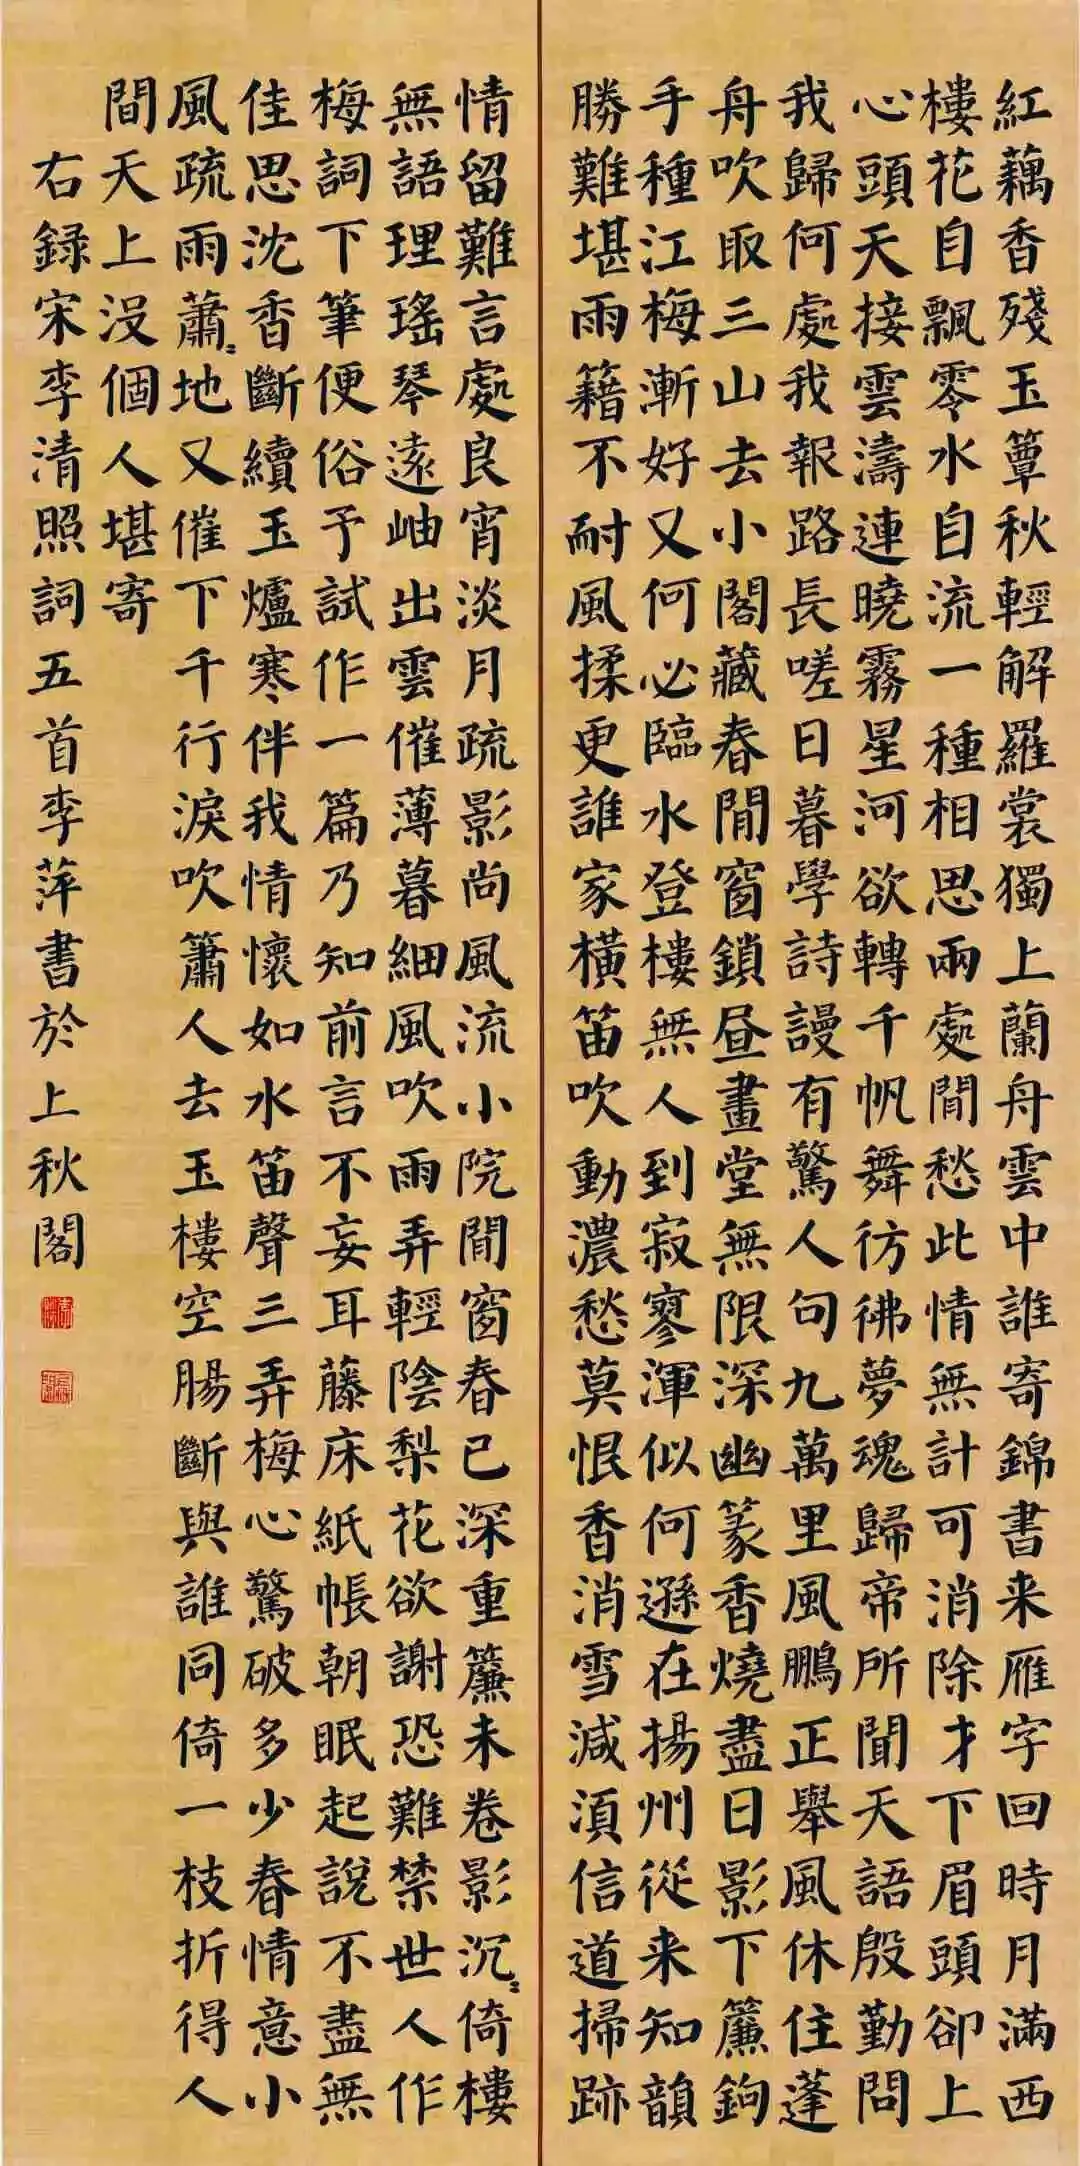 紅藕香殘玉簟秋輕解羅裳獨上蘭舟雲中誰寄錦書来雁字回時月滿西
樓花自飄零水自流一種相思兩處閒愁此情無計可消除才下眉頭卻上
心頭天接雲濤連曉霧星河欲轉千帆舞彷彿夢魂歸帝所聞天語殷勤問
我歸何處我報路長嗟日暮學詩謾有驚人句九萬里風鵬正舉風休住蓬
舟吹取三山去小閣藏春閒窗鎖昼畫堂無限深幽篆香燒盡日影下簾鉤
手種江梅漸好又何必臨水登樓無人到寂寥渾似何遜在揚州從来知韻
勝難堪雨籍不耐風揉更誰家橫笛吹動濃愁莫恨香消雪減須信道掃跡
情留難言處良宵淡月疏影尚風流小院閒窗春已深重簾未卷影沉〻倚樓
無語理瑤琴遠岫出雲催薄暮細風吹雨弄輕陰梨花欲謝恐難禁世人作
梅詞下筆便俗予試作一篇乃知前言不妄耳藤床紙帳朝眠起說不盡無
佳思沈香斷續玉爐寒伴我情懷如水笛聲三弄梅心驚破多少春情意小
風疏雨蕭〻地又催下千行淚吹簫人去玉樓空腸斷與誰同倚一枝折得人
間天上沒個人堪寄
右録宋李清照詞五首李萍書於上秋閣